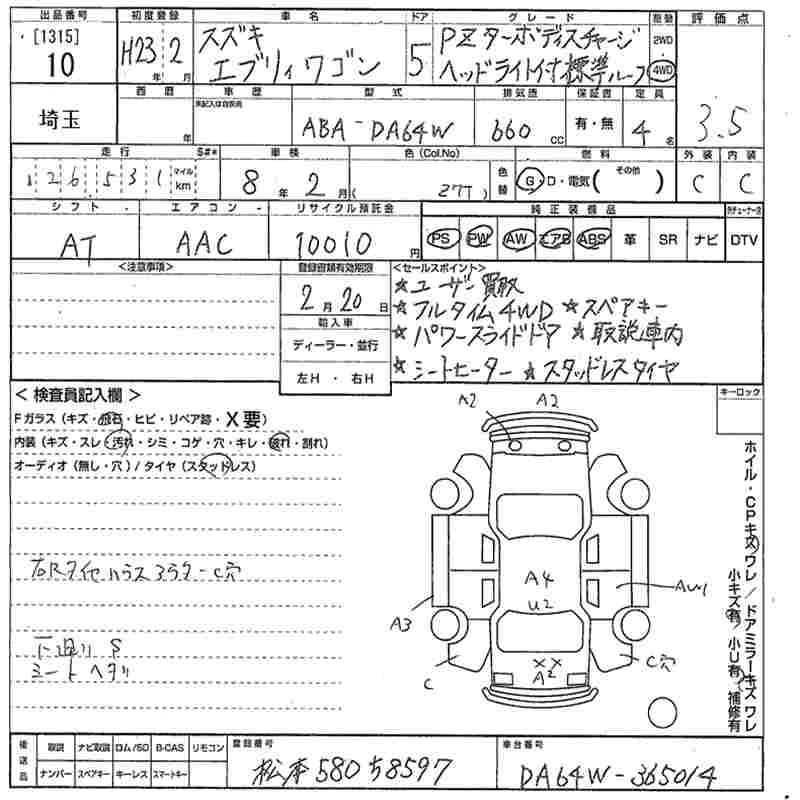 出品番号 初度登録 車名 ドア グレード 駆動 評価点
[1315]
10
H23年 2月
スズキ
エブリィワゴン
5
PZターボディスチャージ
ヘッドライト付標準ルーフ
2WD
4WD
3.5
埼玉
西暦 車歴 型式 排気量 保証書 定員
年
未記入は自家用
ABA-DA64W
660 CC
有・無
4名
走行 S#* 車検 色(Col.No) 燃料 外装 内装
126531 マイル km
8年 2月(
Z7T)
色替
G・D・電気( その他 )
C C
シフト エアコン リサイクル預託金 純正装備品
AT AAC 10010円
PS PW AW エアB ABS 革 SR ナビ DTV
<注意事項>
登録書類有効期限
2月20日
輸入車
ディーラー・並行
左H・右H
<セールスポイント>
★ユーザー買取
★フルタイム4WD ★スペアキー
★パワースライドドア ★取説車内
★シートヒーター ★スタッドレスタイヤ
キーロック
<検査員記入欄>
Fガラス(キズ・飛石・ヒビ・リペア跡・X要)
内装(キズ・スレ・汚れ・シミ・コゲ・穴・キレ・破れ・割れ)
オーディオ(無し・穴)/タイヤ(スタッドレス)
下廻り S
シートヘタリ
A2 A2
A4
U2
A3
C
XX
A2
C穴
ホイル・CPキズワレ/ドアミラーキズワレ
小キズ有, 小U有, 補修有
後送品
取説 ナビ取説 ロム/SD B-CAS リモコン
ナンバー スペアキー キーレス スマートキー
登録番号
松本580ち8597
車台番号
DA64W-365014